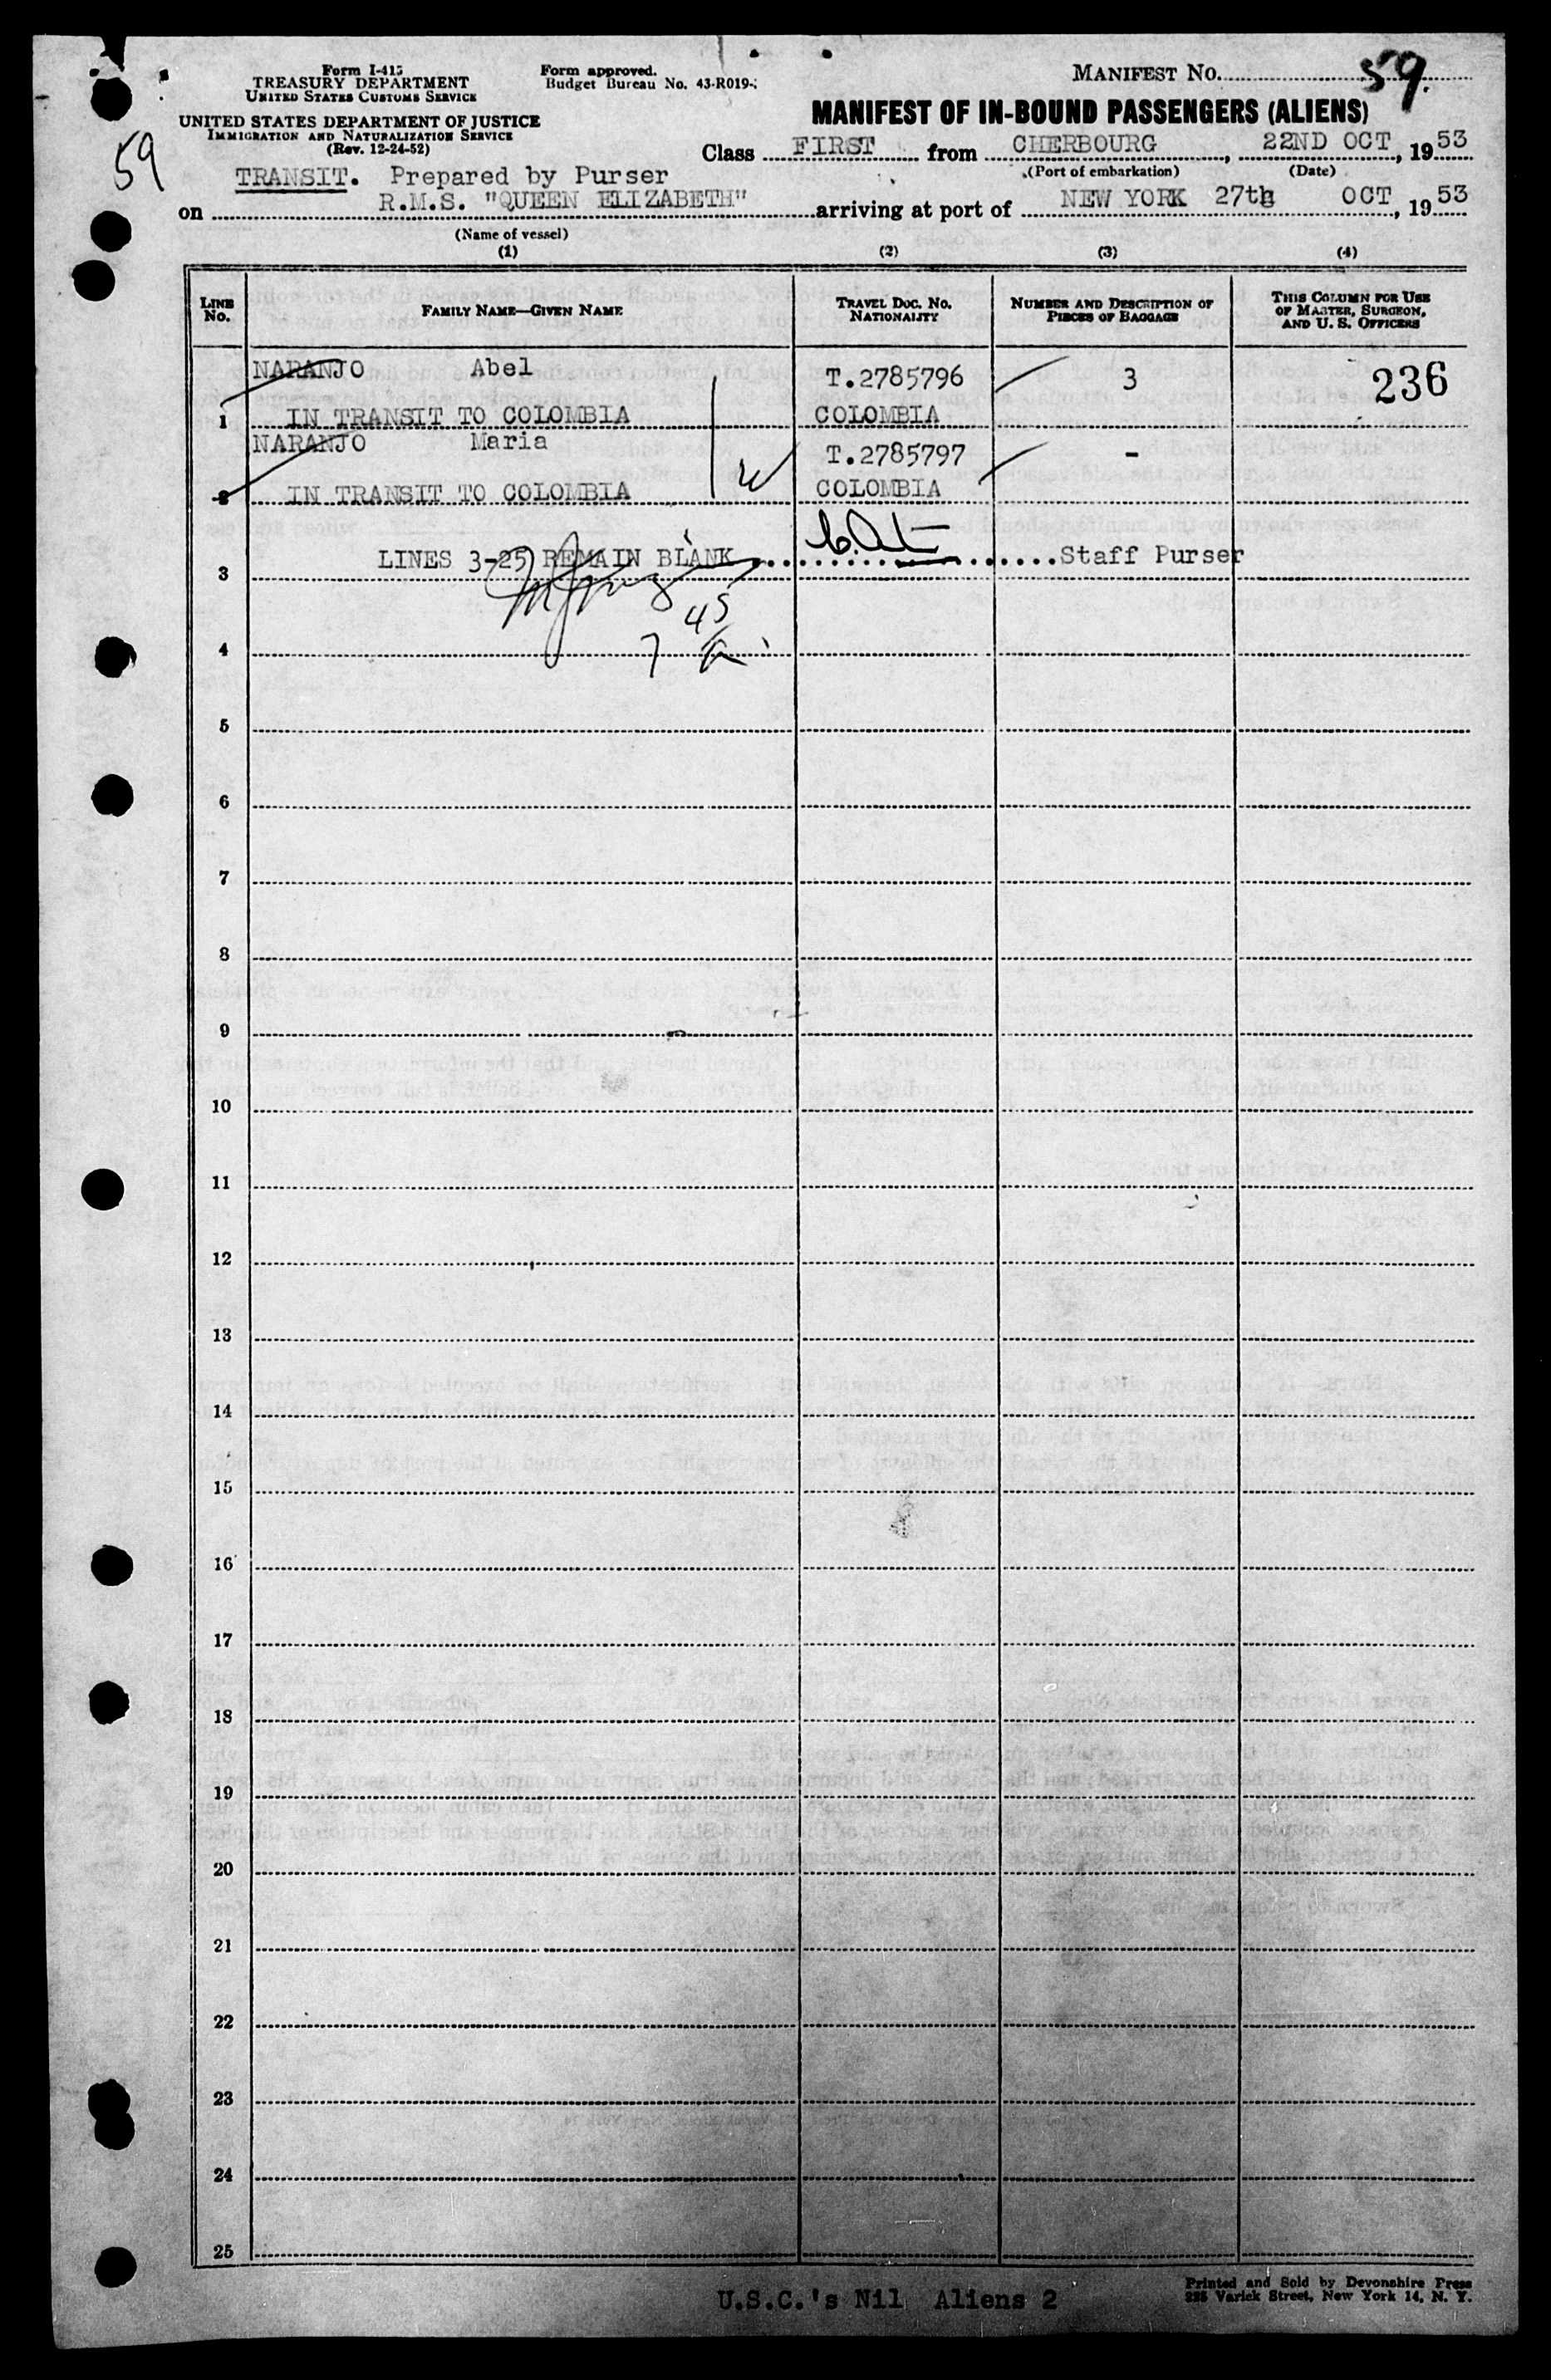 Form I-415
TREASURY DEPARTMENT
UNITED STATES CUSTOMS SERVICE
UNITED STATES DEPARTMENT OF JUSTICE
IMMIGRATION AND NATURALIZATION SERVICE
(Rev. 12-24-52)
Form approved.
Budget Bureau No. 43-R019-
MANIFEST No. 59.
59
MANIFEST OF IN-BOUND PASSENGERS (ALIENS)
Class FIRST from CHERBOURG, 22ND OCT, 1953
(Port of embarkation) (Date)
TRANSIT. Prepared by Purser
on R.M.S. "QUEEN ELIZABETH" arriving at port of NEW YORK 27th OCT, 1953
(Name of vessel)
(1) (2) (3) (4)
LINE No. FAMILY NAME—GIVEN NAME TRAVEL DOC. NO. NATIONALITY NUMBER AND DESCRIPTION OF PIECES OF BAGGAGE THIS COLUMN FOR USE OF MASTER, SURGEON, AND U. S. OFFICERS
NARANJO Abel T.2785796 3 236
1 IN TRANSIT TO COLOMBIA COLOMBIA
NARANJO Maria T.2785797 -
2 IN TRANSIT TO COLOMBIA COLOMBIA
3 LINES 3-25 REMAIN BLANK Staff Purser
45
4 7
5
6
7
8
9
10
11
12
13
14
15
16
17
18
19
20
21
22
23
24
25
U.S.C.'s Nil Aliens 2
Printed and Sold by Devonshire Press
225 Varick Street, New York 14, N. Y.